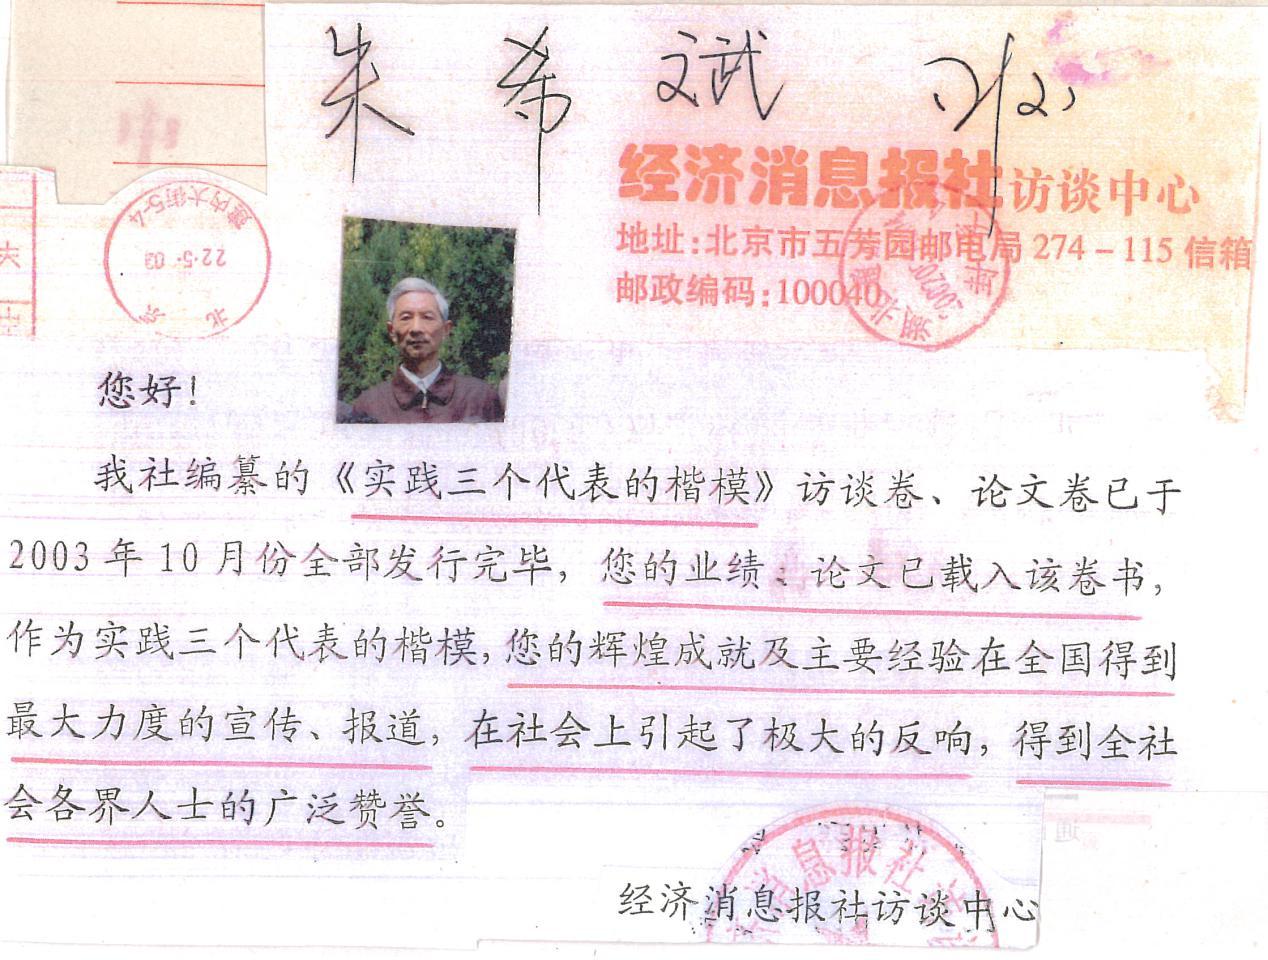 朱希斌
经济消息报社访谈中心
地址:北京市五芳园邮电局 274-115 信箱
邮政编码:100040
北京
22·5·03
您好!
我社编纂的《实践三个代表的楷模》访谈卷、论文卷已于
2003 年 10 月份全部发行完毕,您的业绩:论文已载入该卷书,
作为实践三个代表的楷模,您的辉煌成就及主要经验在全国得到
最大力度的宣传、报道,在社会上引起了极大的反响,得到全社
会各界人士的广泛赞誉。
消息报社
经济消息报社访谈中心